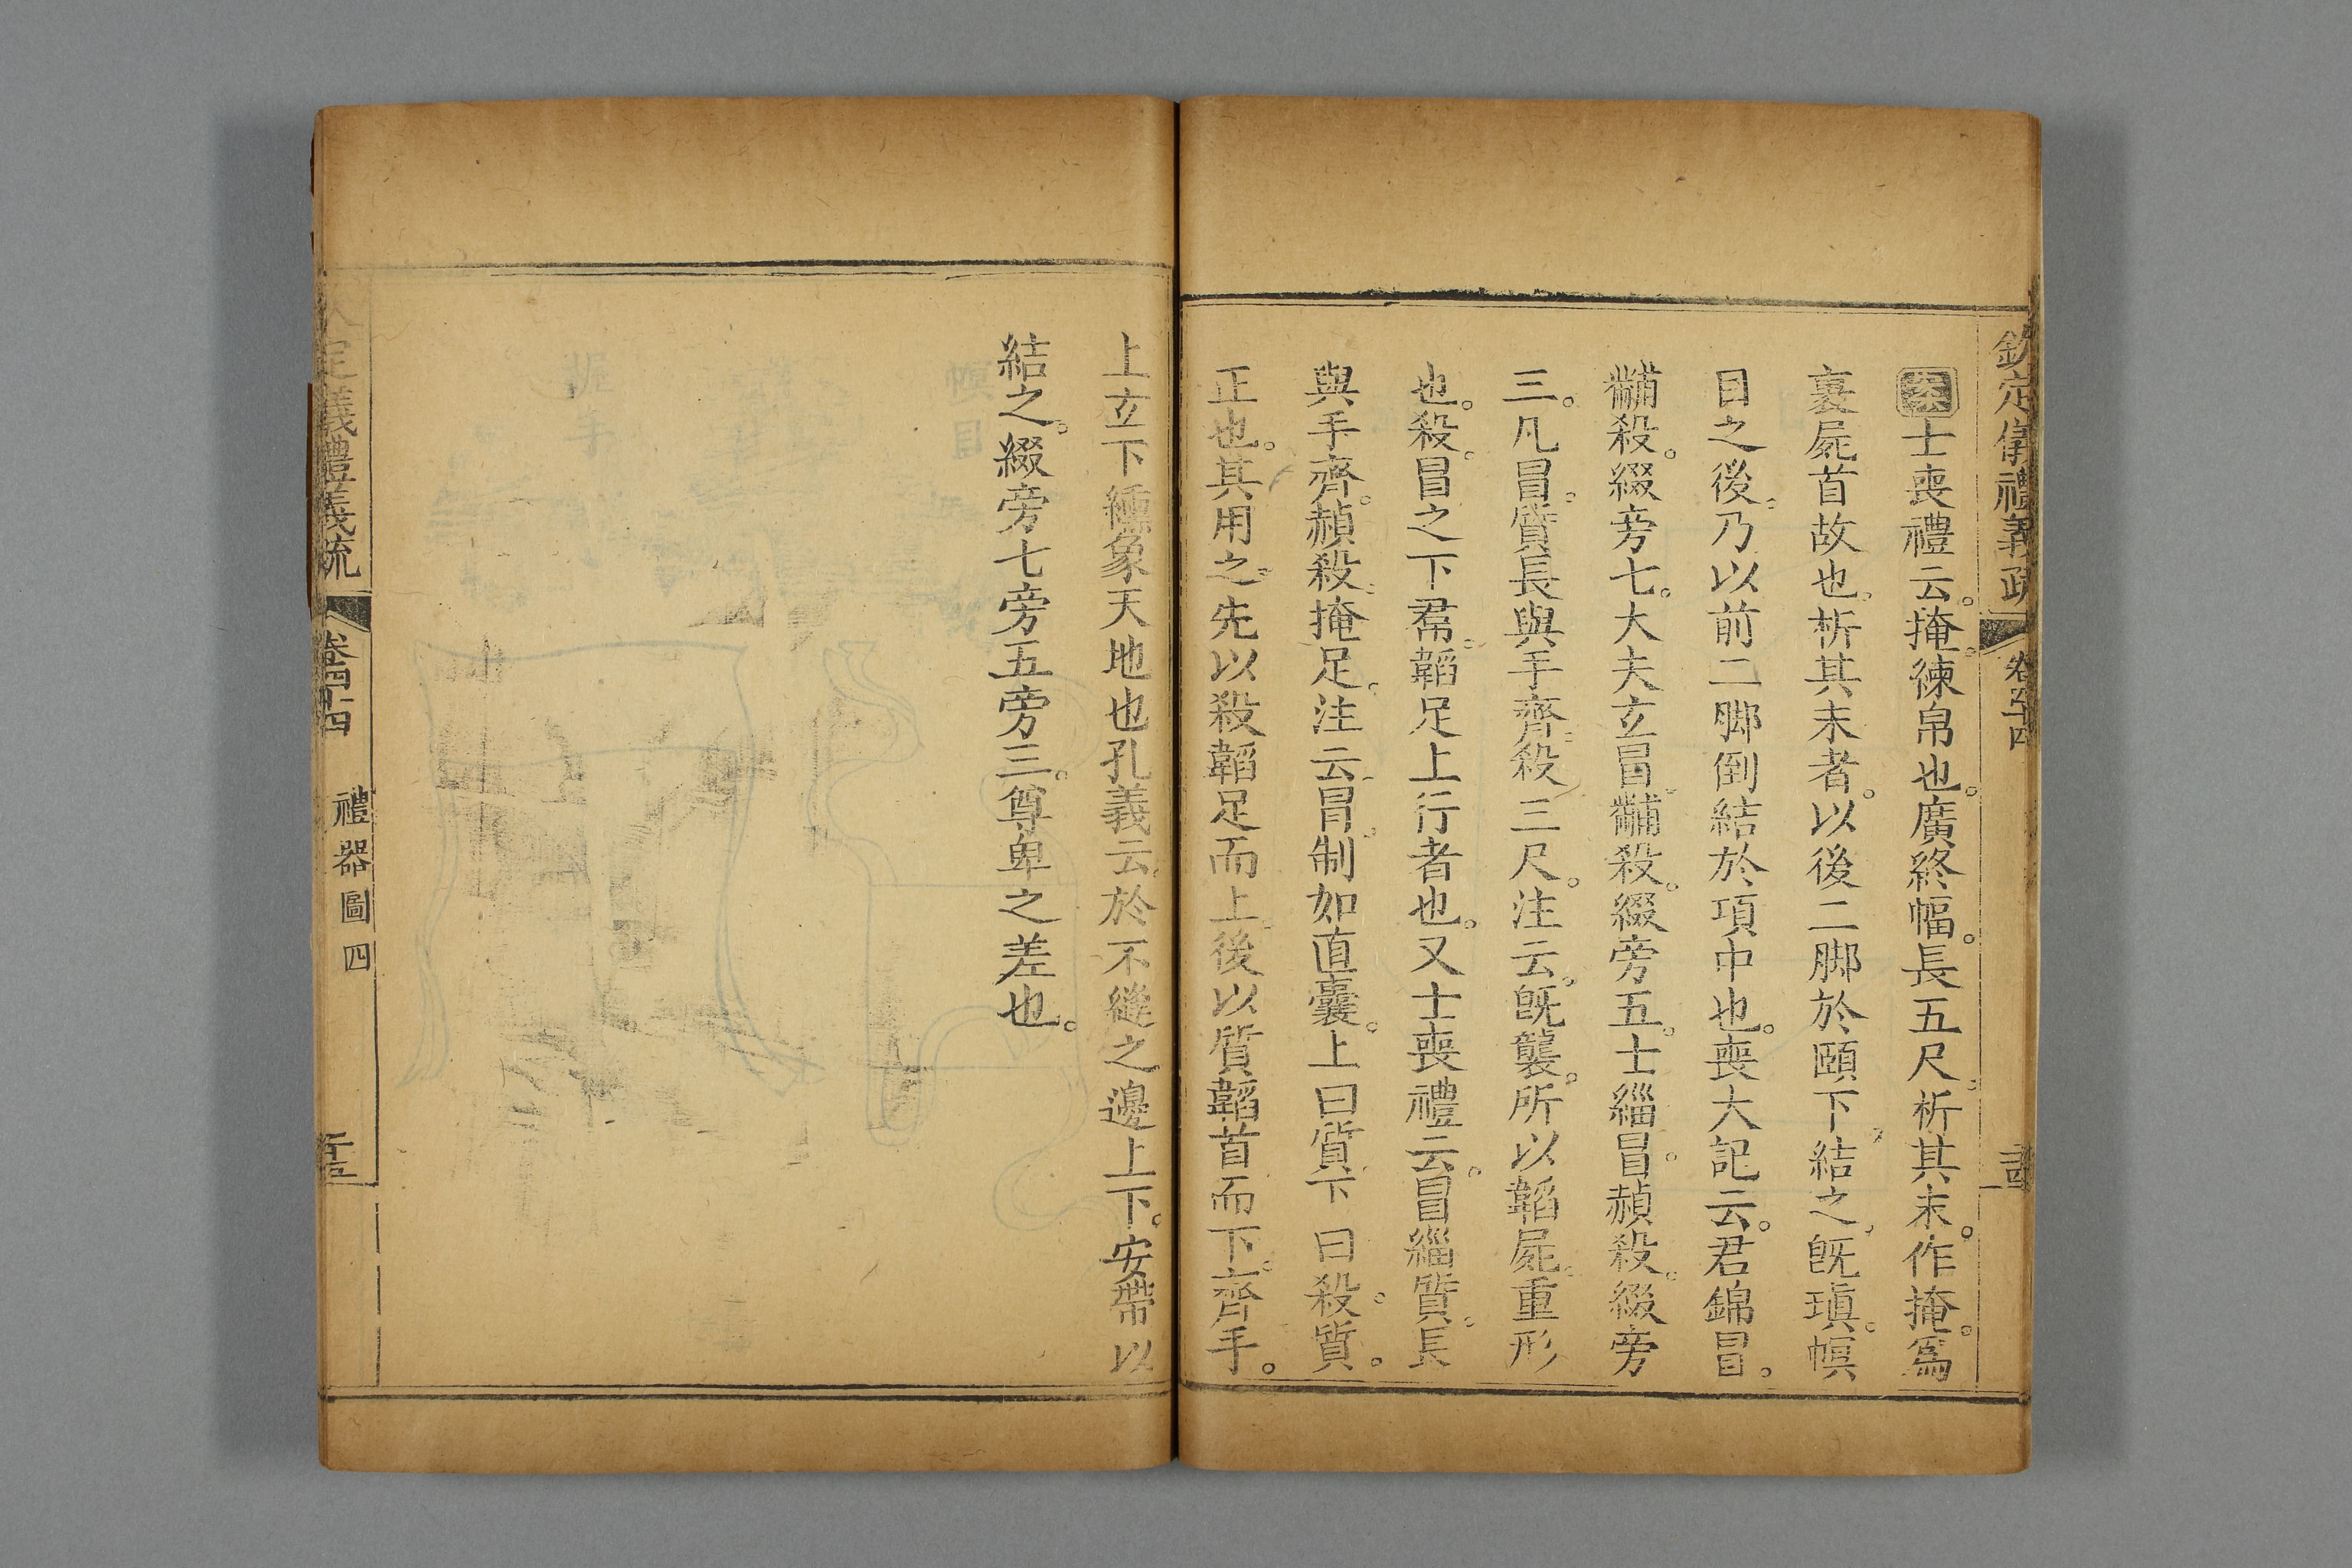 欽定儀禮義疏 卷四十四
案士喪禮云掩練帛也。廣終幅。長五尺。析其末。作掩。為
裹屍首故也。析其末者。以後二脚於頤下結之。旣瑱。幎
目之後。乃以前二脚倒結於項中也。喪大記云。君錦冒。
黼殺。綴旁七。大夫玄冒黼殺。綴旁五。士緇冒。赬殺。綴旁
三。凡冒。質長與手齊。殺三尺。注云。旣襲。所以韜屍重形
也。殺。冒之下帬。韜足上行者也。又士喪禮云。冒緇質。長
與手齊。赬殺。掩足。注云。冒。制如直囊。上曰質。下曰殺。質。
正也。其用之。先以殺韜足而上。後以質韜首而下。齊手。
上玄下纁象天地也孔義云於不縫之邊上下。安帶以
結之。綴旁七旁五旁三。尊卑之差也。
定義禮義流 卷四十四 禮器圖四